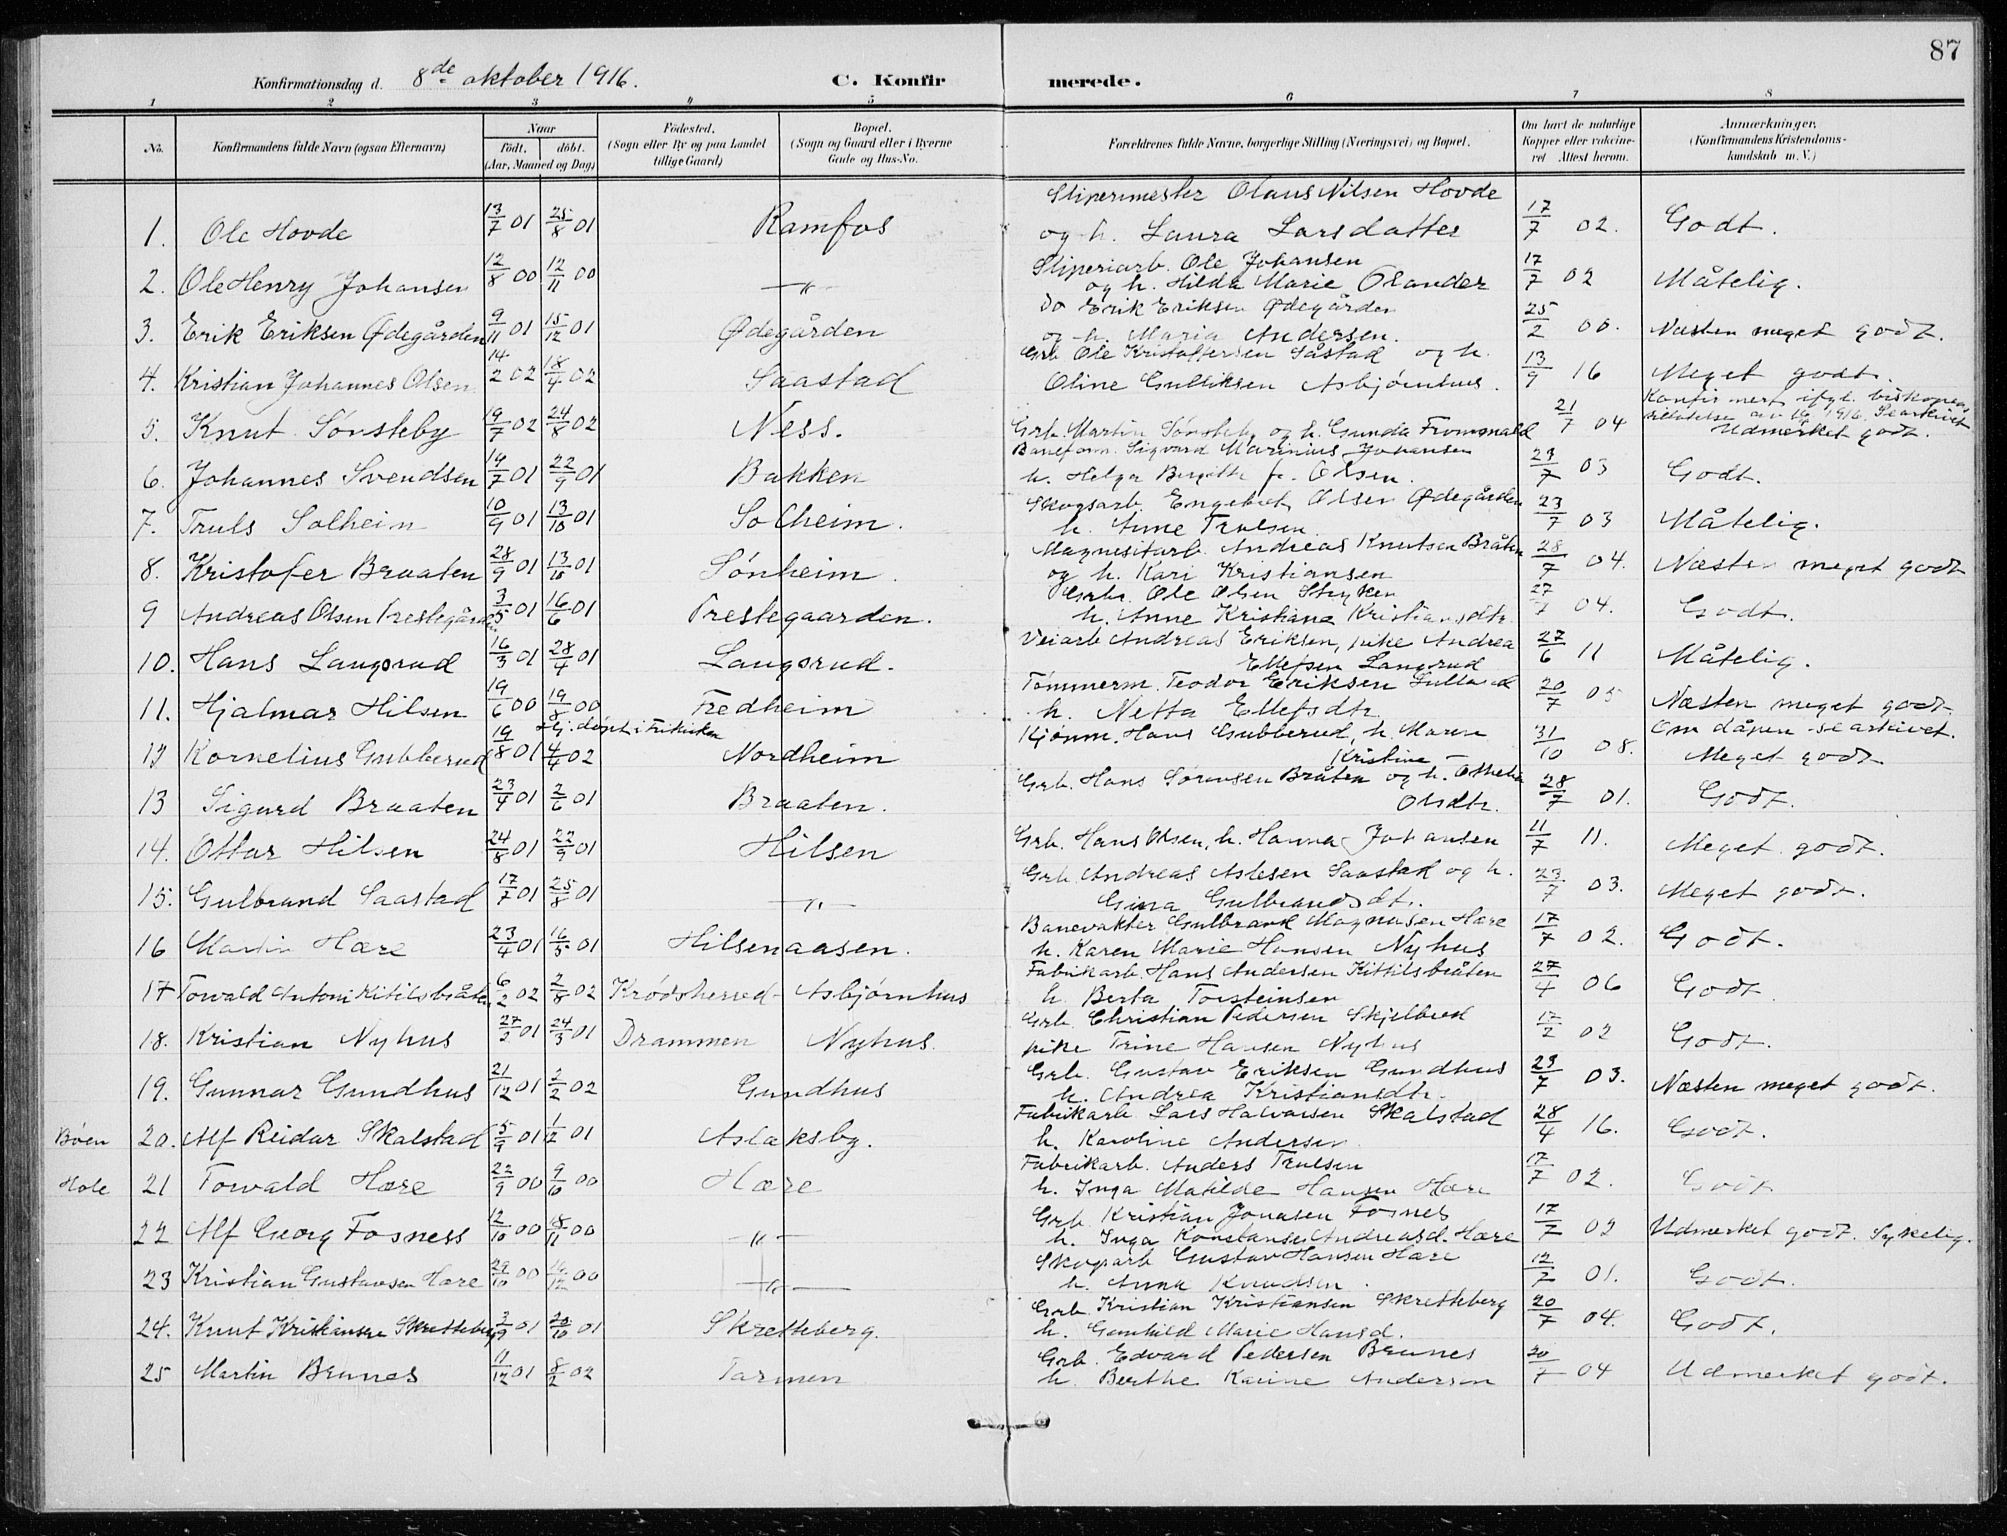 87
Konfirmationsdag d. 8de oktober 1916. C. Konfirmerede.
1 2 3 4 5 6 7 8
No. Konfirmandens fulde Navn (ogsaa Efternavn) Naar født, døbt. (Aar, Maaned og Dag) Fødested. (Sogn eller By og paa Landet tillige Gaard) Bopæl. (Sogn og Gaard eller i Byerne Gade og Hus-No. Forældrenes fulde Navne, borgerlige Stilling (Næringsvei) og Bopæl. Om havt de naturlige Kopper eller vakcineret Attest herom. Anmærkninger, (Konfirmandens Kristendomskundskab m. V.)
1. Ole Hovde 13/7 01 25/8 01 Ramfos Sliperimester Olaus Nilsen Hovde og h. Laura Larsdatter 17/7 02. Godt.
2. Ole Henry Johansen 12/8 00 12/11 00 —"— Sliperiarb. Ole Johansen og h. Hilda Marie Olander 17/7 02 Måtelig.
3. Erik Eriksen Ødegården 9/11 01 15/12 01 Ødegården Do Erik Eriksen Ødegården og h. Maria Andersen. 25/2 Næsten meget godt.
4. Kristian Johannes Olsen 14/2 02 18/4 02 Saastad Grb. Ole Kristoffersen Såstad og h. Oline Gulliksen Asbjørnhus. 13/9 16 Meget godt.
5. Knut Sønsteby 19/7 02 24/8 02 Ness. Grb. Martin Sønsteby og h. Gunda 21/7 04 Udmerket godt.
6. Johannes Svendsen 14/7 01 22/9 01 Bakken Baneform. Sigvard Marinius Johansen h. Helga f. Olsen. 23/7 03 Godt.
7. Truls Solheim 10/9 01 13/10 01 Solheim. Skogsarb. Engebret Olsen Ødegården h. Anne Trulsen 23/7 03 Måtelig.
8. Kristofer Braaten 28/9 01 13/10 01 Sønheim. Magnesitarb. Andreas Knutsen Bråten og h. Kari Kristiansen 28/7 04. Næsten meget godt
9 Andreas Olsen Prestegården 3/5 01 16/6 01 Prestegaarden. Ole Olsen h. Anne Kristiane Kristiansdtr. 27/7 04. Godt.
10. Hans Langsrud 16/3 01 28/4 01 Langsrud. Veiarb Andreas Eriksen, pike Andrea Ellefsen Langsrud 27/6 11 Måtelig.
11. Hjalmar Hilsen 19/6 00 19/8 00 Fredheim Tømmerm. Teodor Eriksen h. Netta Ellefsdtr. 20/7 05 Næsten meget godt
Hj. døpt i Frikirken Om dåpen se arkivet.
12 Kornelius Gubberud 19/8 01 4/4 02 Nordheim Kjørm. Hans Gubberud, h. Maren Kristine 31/10 08. Meget godt
13 Sigurd Braaten 23/4 01 2/6 01 Braaten. Grb. Hans Sørensen Bråten og h. Othelia Olsdtr. 28/7 01. Godt.
14. Ottar Hilsen 24/8 01 22/9 01 Hilsen Grb. Hans Olsen, h. Hanna Johansen 11/7 11. Meget godt.
15. Gulbrand Saastad 17/7 01 25/8 01 —"— Grb. Andreas Aslesen Saastad og h. Gina Gulbrandsdt. 23/7 03. Meget godt.
16 Martin Hære 23/4 01 16/5 01 Hilsenaasen. Banevakter Gulbrand Magnusen Hære h. Karen Marie Hansen Nyhus 17/7 02. Godt.
17 Torvald Antoni Kitilsbråten 6/2 02 2/8 02 Krødsherred - Asbjørnhus Fabrikarb. Hans Andersen Kittilsbråten h. Berta Torsteinsen 27/4 06 Godt.
18. Kristian Nyhus 27/2 01 24/3 01 Drammen Nyhus. Grb. Christian Pedersen Skjelbred pike Trine Hansen Nyhus 17/2 02 Godt.
19. Gunnar Gundhus 21/12 01 2/2 02 Gundhus Grb. Gustav Eriksen Gundhus h. Andrea Kristiansdtr. 23/7 03. Næsten meget godt.
Bøen 20. Alf Reidar Skalstad 5/9 01 01 Aslaksby. Fabrikarb. Lars Halvorsen Skalstad h. Karoline Andersen 28/4 16. Godt.
Hole 21 Torvald Hære 22/9 00 9/10 00 Hære Fabrikarb. Anders Trulsen h. Inga Matilde Hansen Hære 17/7 02. Godt
22 Alf Georg Fosness 12/10 00 18/11 00 —"— Grb. Kristian Jonasen Fosnes h. Inga Konstanse Andreasd. Hære 17/7 02 Udmerket godt. Sykelig.
23 Kristian Gustavsen Hære 29/10 00 16/12 00 —"— Skogarb. Gustav Hansen Hære h. Anna Knudsen. 12/7 01. Godt.
24. Knut Kristiansen Skretteberg 2/9 01 20/10 01 Skretteberg. Grb. Kristian Kristiansen Skretteberg h. Gunhild Marie Hansd. 20/7 04. Godt.
25 Martin Brunes 11/12 01 8/2 02 Tarmen Grb. Edvard Pedersen Brunes h. Berthe Karine Andersen 20/7 04 Udmerket godt.